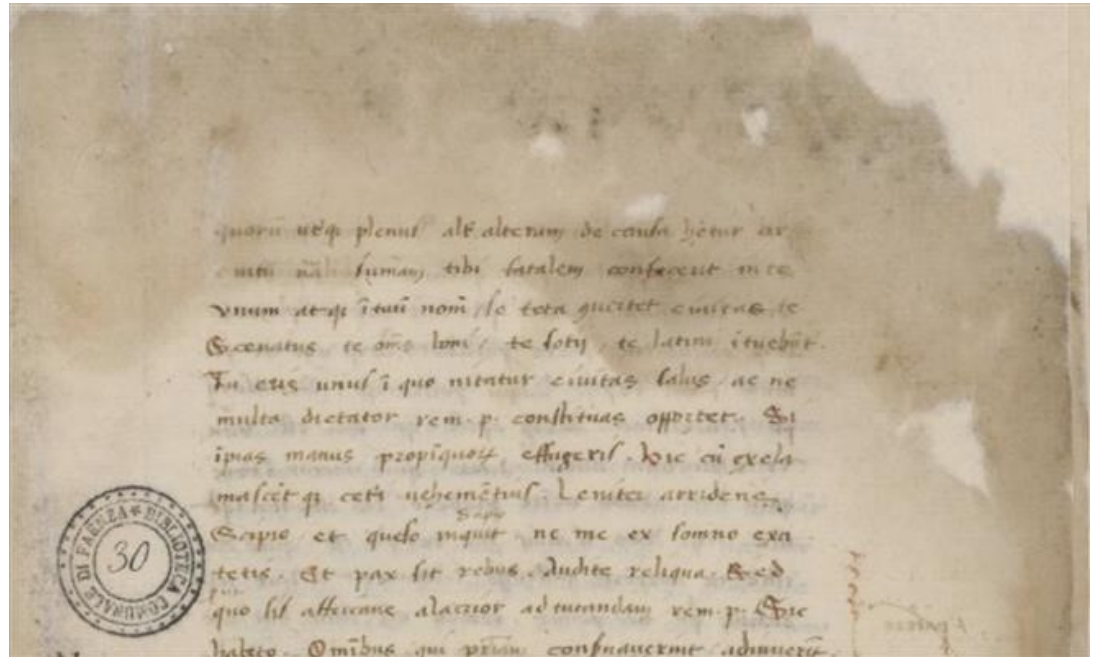 quorū utq̃ plenus alt̃ alteram de causa hẽtur cir
cuitu nāli sumam tibi fatalem confecerit in te
vnum atq̃ ī tuū nom̃ se tota quertet civitas te
Scenatus te om̃s boni te sotij te latini ītuebūt.
Tu eris unus ī quo nitatur civitas salus ac ne
multa dictator rem p. constituas opportet. Si
īpias manus propīquoꝝ effugeris. hic cū excla
mascet q̃ ceti uehemētius. Leniter arridens
Scipio et queso inquit ne me ex somno exci
tetis. Et pax sit rebus. Audite reliqua. Sed
quo sis affricane alacrior ad tutandam rem p. Sic
habeto. Omĩbus qui priam conseruaverint adiuuerīt
BIBLIOTECA COMUNALE DI FAENZA
30